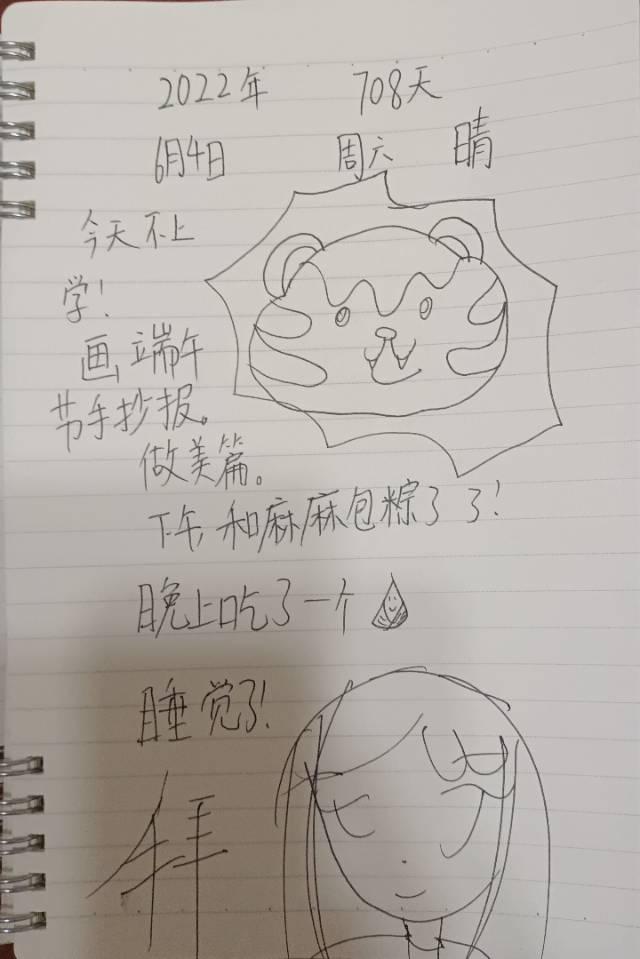 2022年 708天
6月4日 周六 晴
今天不上
学！
画端午
节手抄报。
做美篇。
下午，和麻麻包粽了了！
晚上吃了一个
睡觉了！
拜